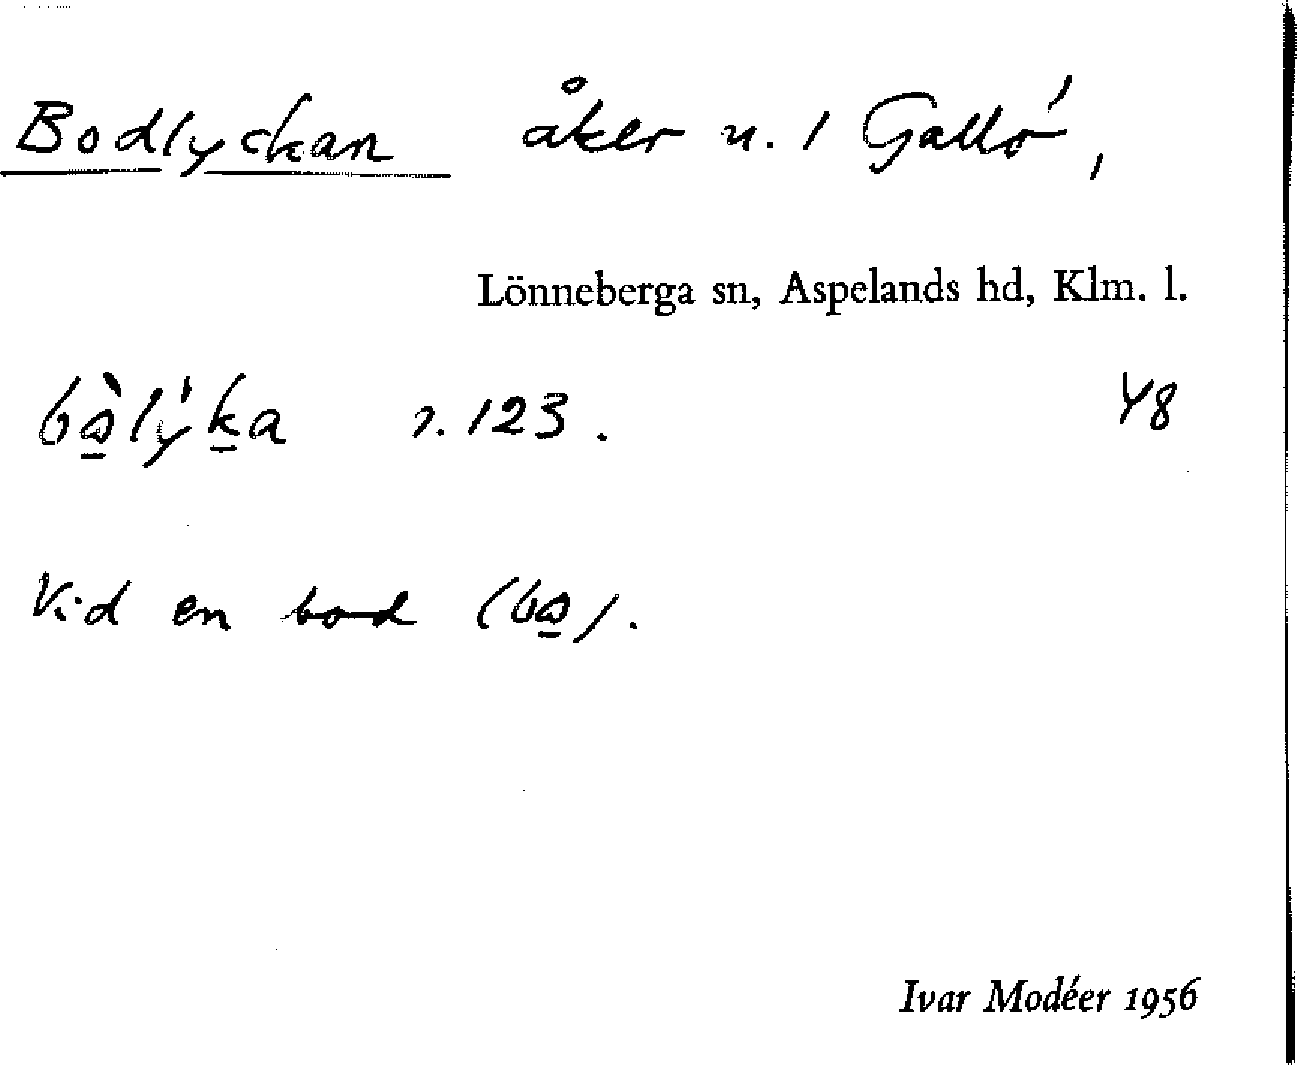 Bodlyckan åker u. 1 Gallö,
Lönneberga sn, Aspelands hd, Klm. l.
48
Vid en bod
Ivar Modéer 1956